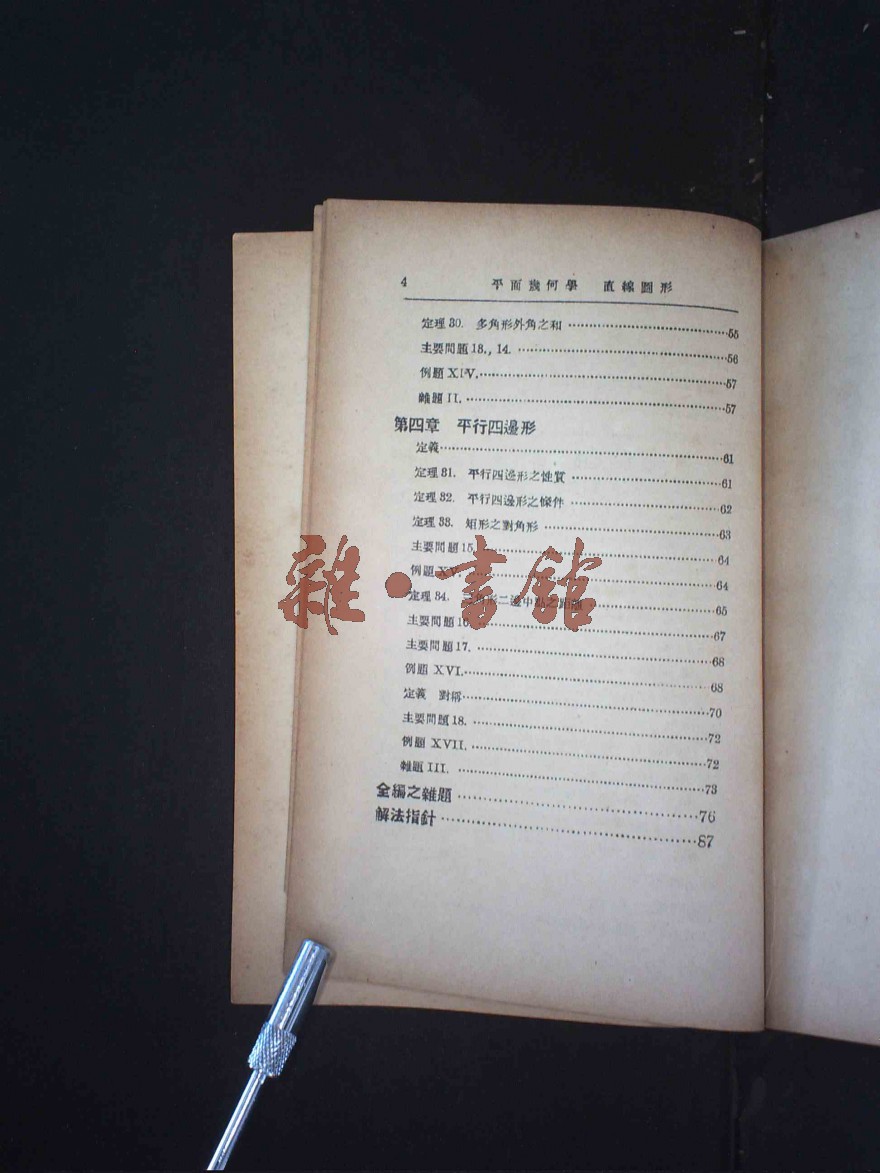 4 平面幾何學 直線圖形
定理30. 多角形外角之和 ……55
主要問題13., 14. ……56
例題XIV. ……57
雜題II. ……57
第四章 平行四邊形
定義 ……61
定理31. 平行四邊形之性質 ……61
定理32. 平行四邊形之條件 ……62
定理33. 矩形之對角形 ……63
主要問題15. ……64
例題XV. ……64
定理34. 二邊中點之 ……65
主要問題16 ……67
主要問題17. ……68
例題XVI. ……68
定義 對稱 ……70
主要問題18. ……72
例題XVII. ……72
雜題III. ……73
全編之雜題 ……76
解法指針 ……87
雜·書館